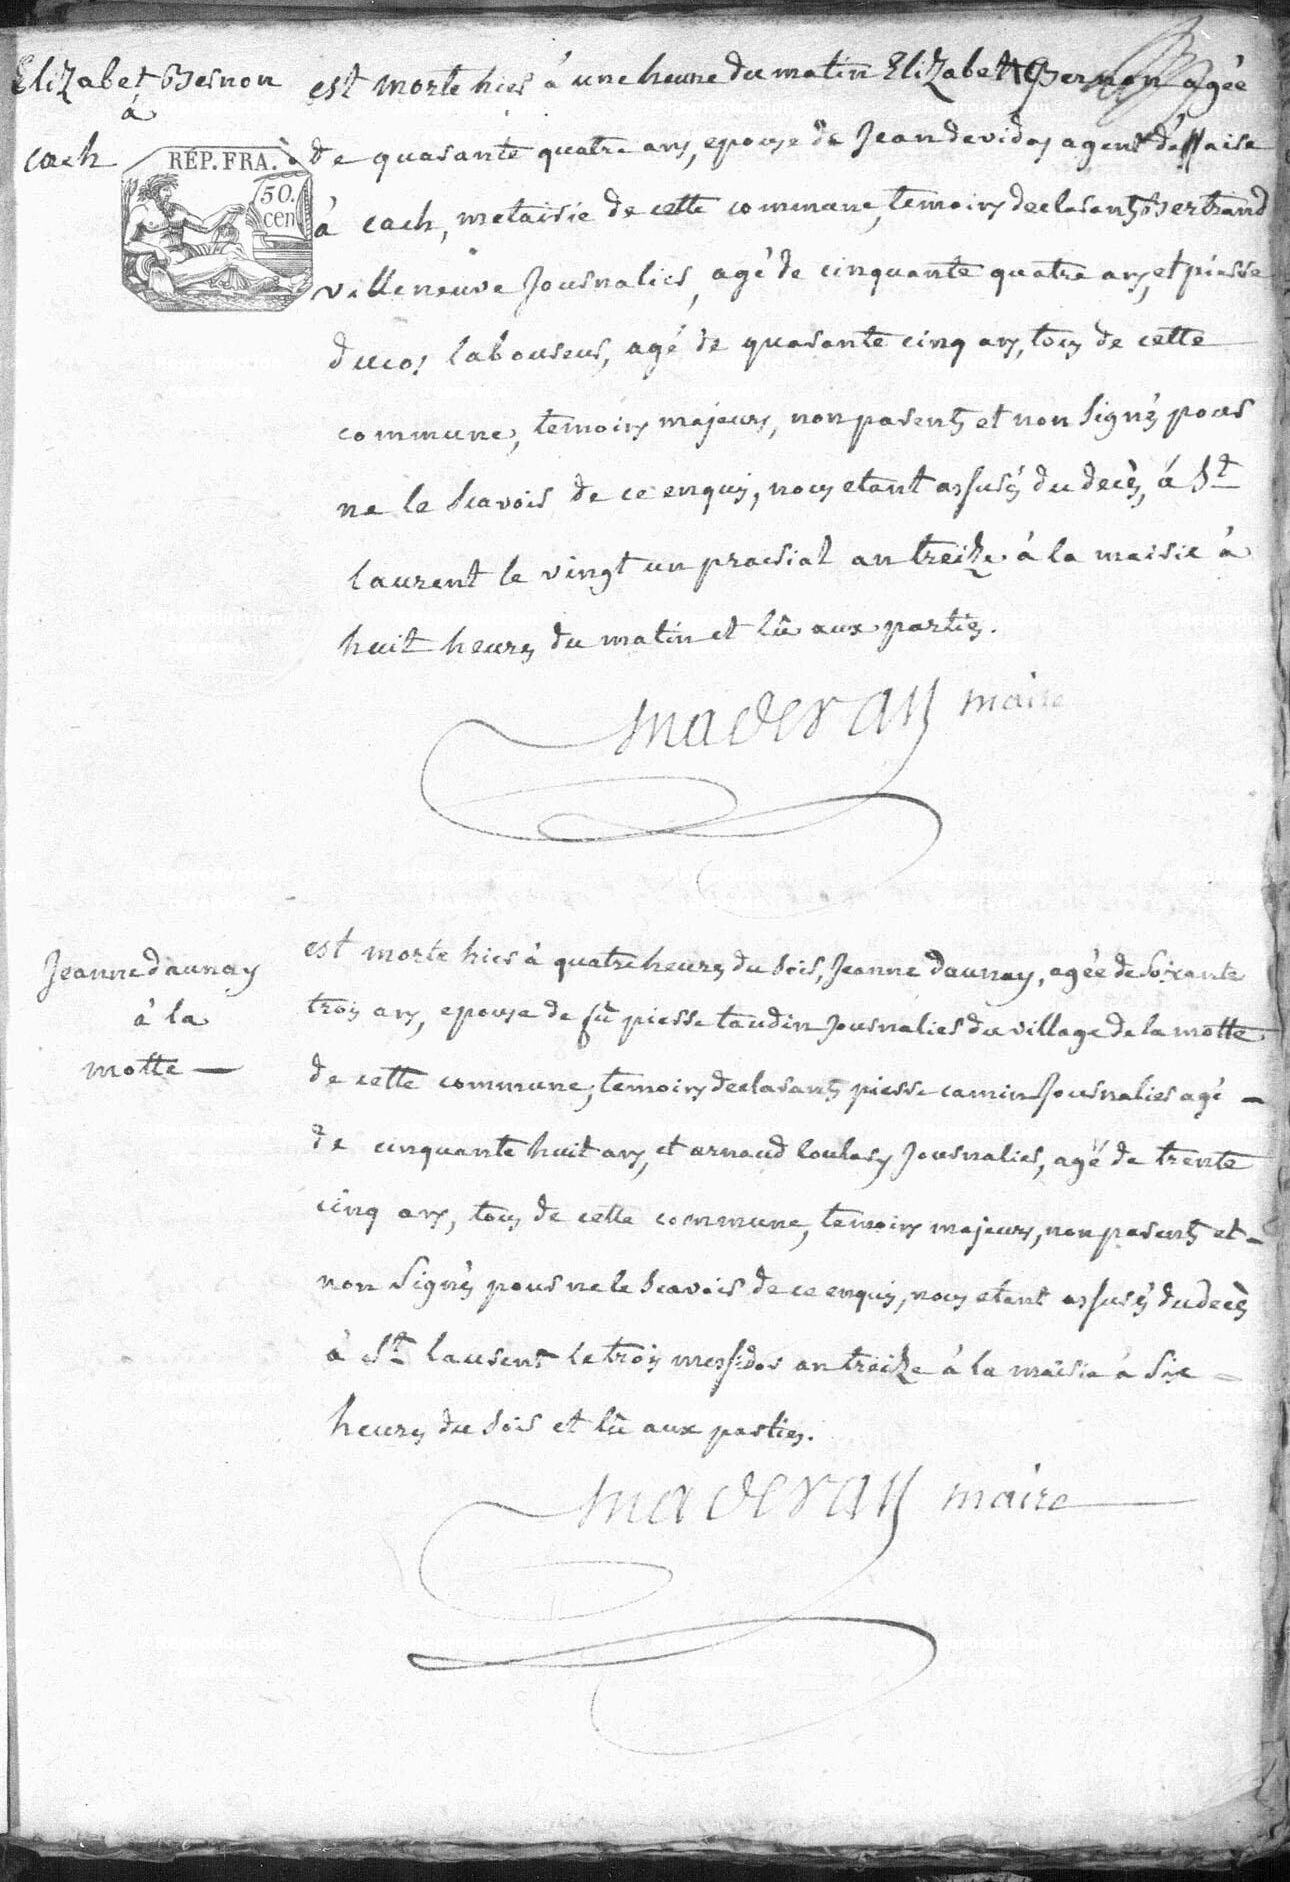 Elizabet Bernon
à
cach
RÉP. FRA.
50.
cen
est morte hier à une heure du matin Elizabeth Bernon agée
de quarante quatre ans, epouse de Jean devidas agent d'affaire
à cach, metairie de cette commune, temoins declarants Bertrand
villeneuve Journalier, agé de cinquante quatre ans, et pierre
ducos laboureur, agé de quarante cinq ans, tous de cette
commune, temoins majeurs, non parents et non signés pour
ne le scavoir de ce enquis, nous etant assurés du decès, à St
laurent le vingt un prairial an treize à la mairie à
huit heures du matin et lû aux parties.
maderan maire
Jeanne daunay
à la
motte
est morte hier à quatre heures du soir, Jeanne daunay, agée de soixante
trois ans, epouse de fû pierre taudin Journalier du village de la motte
de cette commune, temoins declarants pierre camin Journalier agé
de cinquante huit ans, et arnaud loulary Journalier, agé de trente
cinq ans, tous de cette commune, temoins majeurs, non parents et
non signés pour ne le scavoir de ce enquis, nous etant assurés du decès
à St laurent le trois messidor an treize à la mairie à six
heures du soir et lû aux parties.
maderan maire